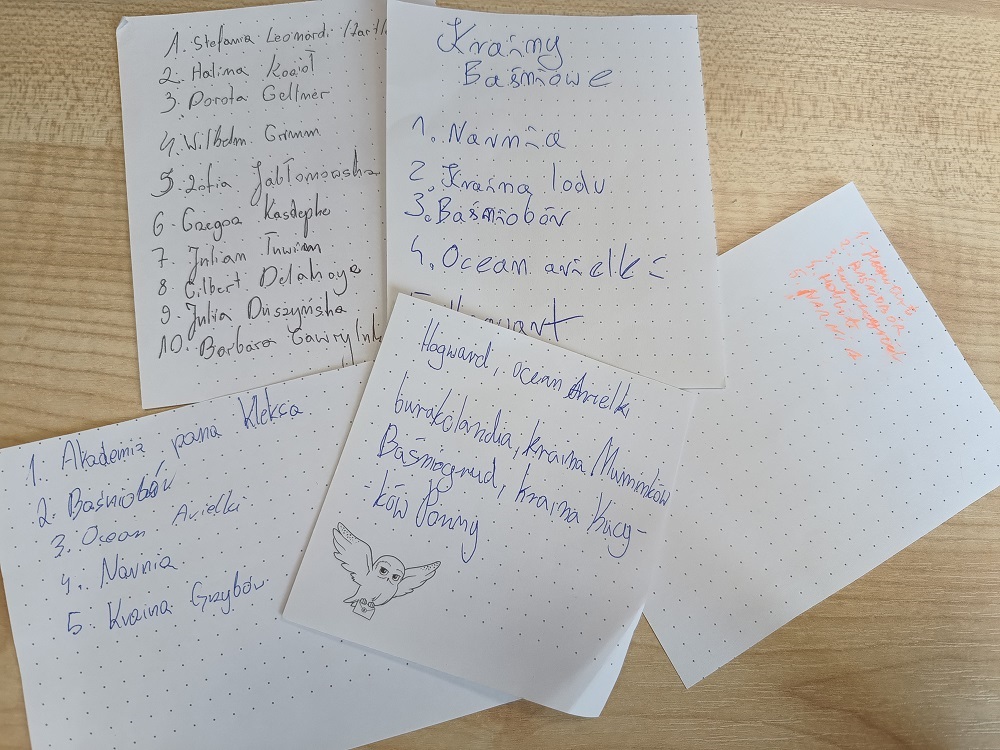 1. Stefania Leonardi
2. Halina Kozioł
3. Dorota Gellner
4. Wilhelm Grimm
5. Zofia Jabłonowska
6. Grzegoż Kasdepke
7. Julian Tuwim
8. Gilbert Delahoye
9. Julia Duszyńska
10. Barbara
Krainy
Baśniowe
1. Narnia
2. Kraina lodu
3. Baśniobór
4. Ocean arielki
Hogward, ocean Arielki
burakolandia, kraina Muminków
Baśniogrud, kraina Kucy-
-ków Ponny
1. Akademia pana Kleksa
2. Baśniobór
3. Ocean Arielki
4. Narnia
5. Kraina Grzybów